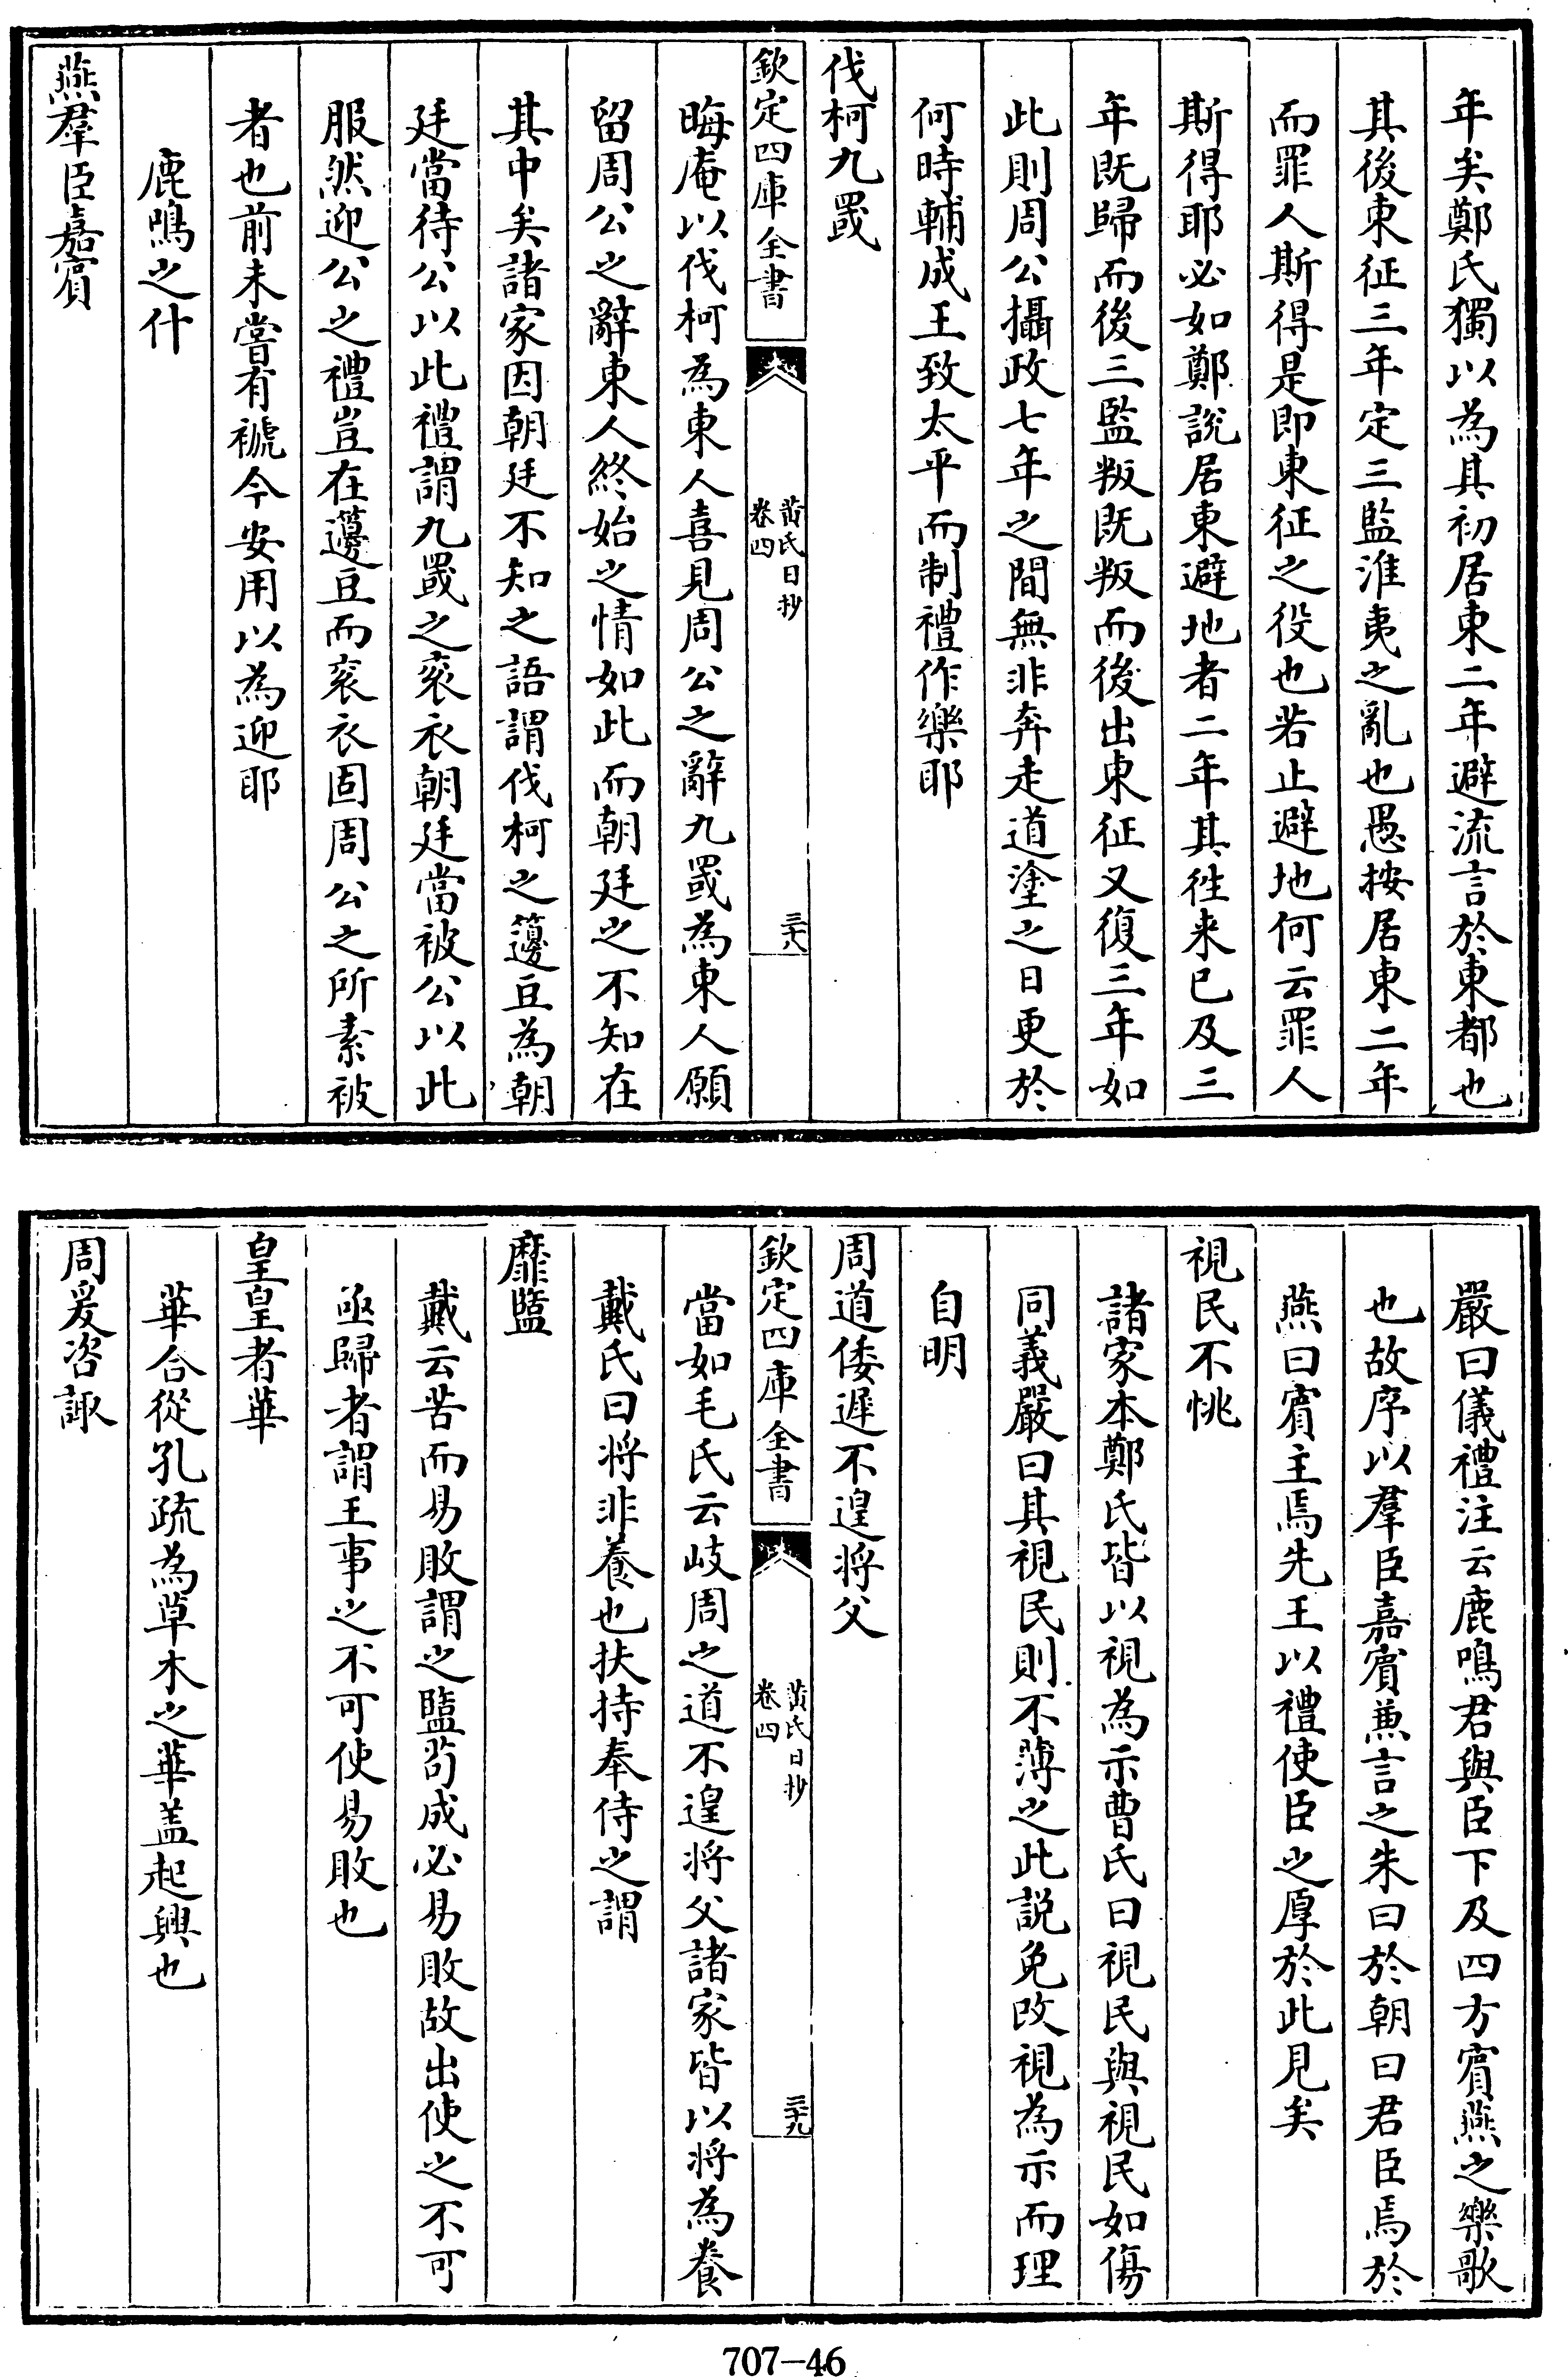 年矣鄭氏獨以為其初居東二年避流言於東都也
其後東征三年定三監淮夷之亂也愚按居東二年
而罪人斯得是即東征之役也若止避地何云罪人
斯得耶必如鄭說居東避地者二年其徃来已及三
年既歸而後三監叛既叛而後出東征又復三年如
此則周公攝政七年之間無非奔走道塗之日更於
何時輔成王致太平而制禮作樂耶
伐柯九罭
欽定四庫全書
黄氏日抄
卷四
三十八
晦庵以伐柯為東人喜見周公之辭九罭為東人願
留周公之辭東人終始之情如此而朝廷之不知在
其中矣諸家因朝廷不知之語謂伐柯之籩豆為朝
廷當待公以此禮謂九罭之衮衣朝廷當被公以此
服然迎公之禮豈在籩豆而衮衣固周公之所素被
者也前未嘗有褫今安用以為迎耶
鹿鳴之什
燕羣臣嘉賔
嚴曰儀禮注云鹿鳴君與臣下及四方賔燕之樂歌
也故序以羣臣嘉賔兼言之朱曰於朝曰君臣焉於
燕曰賔主焉先王以禮使臣之厚於此見矣
視民不恌
諸家本鄭氏皆以視為示曹氏曰視民與視民如傷
同義嚴曰其視民則不薄之此説免改視為示而理
自明
周道倭遲不遑将父
欽定四庫全書
黄氏日抄
卷四
三十九
當如毛氏云岐周之道不遑将父諸家皆以将為養
戴氏曰将非養也扶持奉侍之謂
靡盬
戴云苦而易敗謂之盬苟成必易敗故出使之不可
亟歸者謂王事之不可使易敗也
皇皇者華
華合從孔疏為草木之華盖起興也
周爰咨諏
707-46